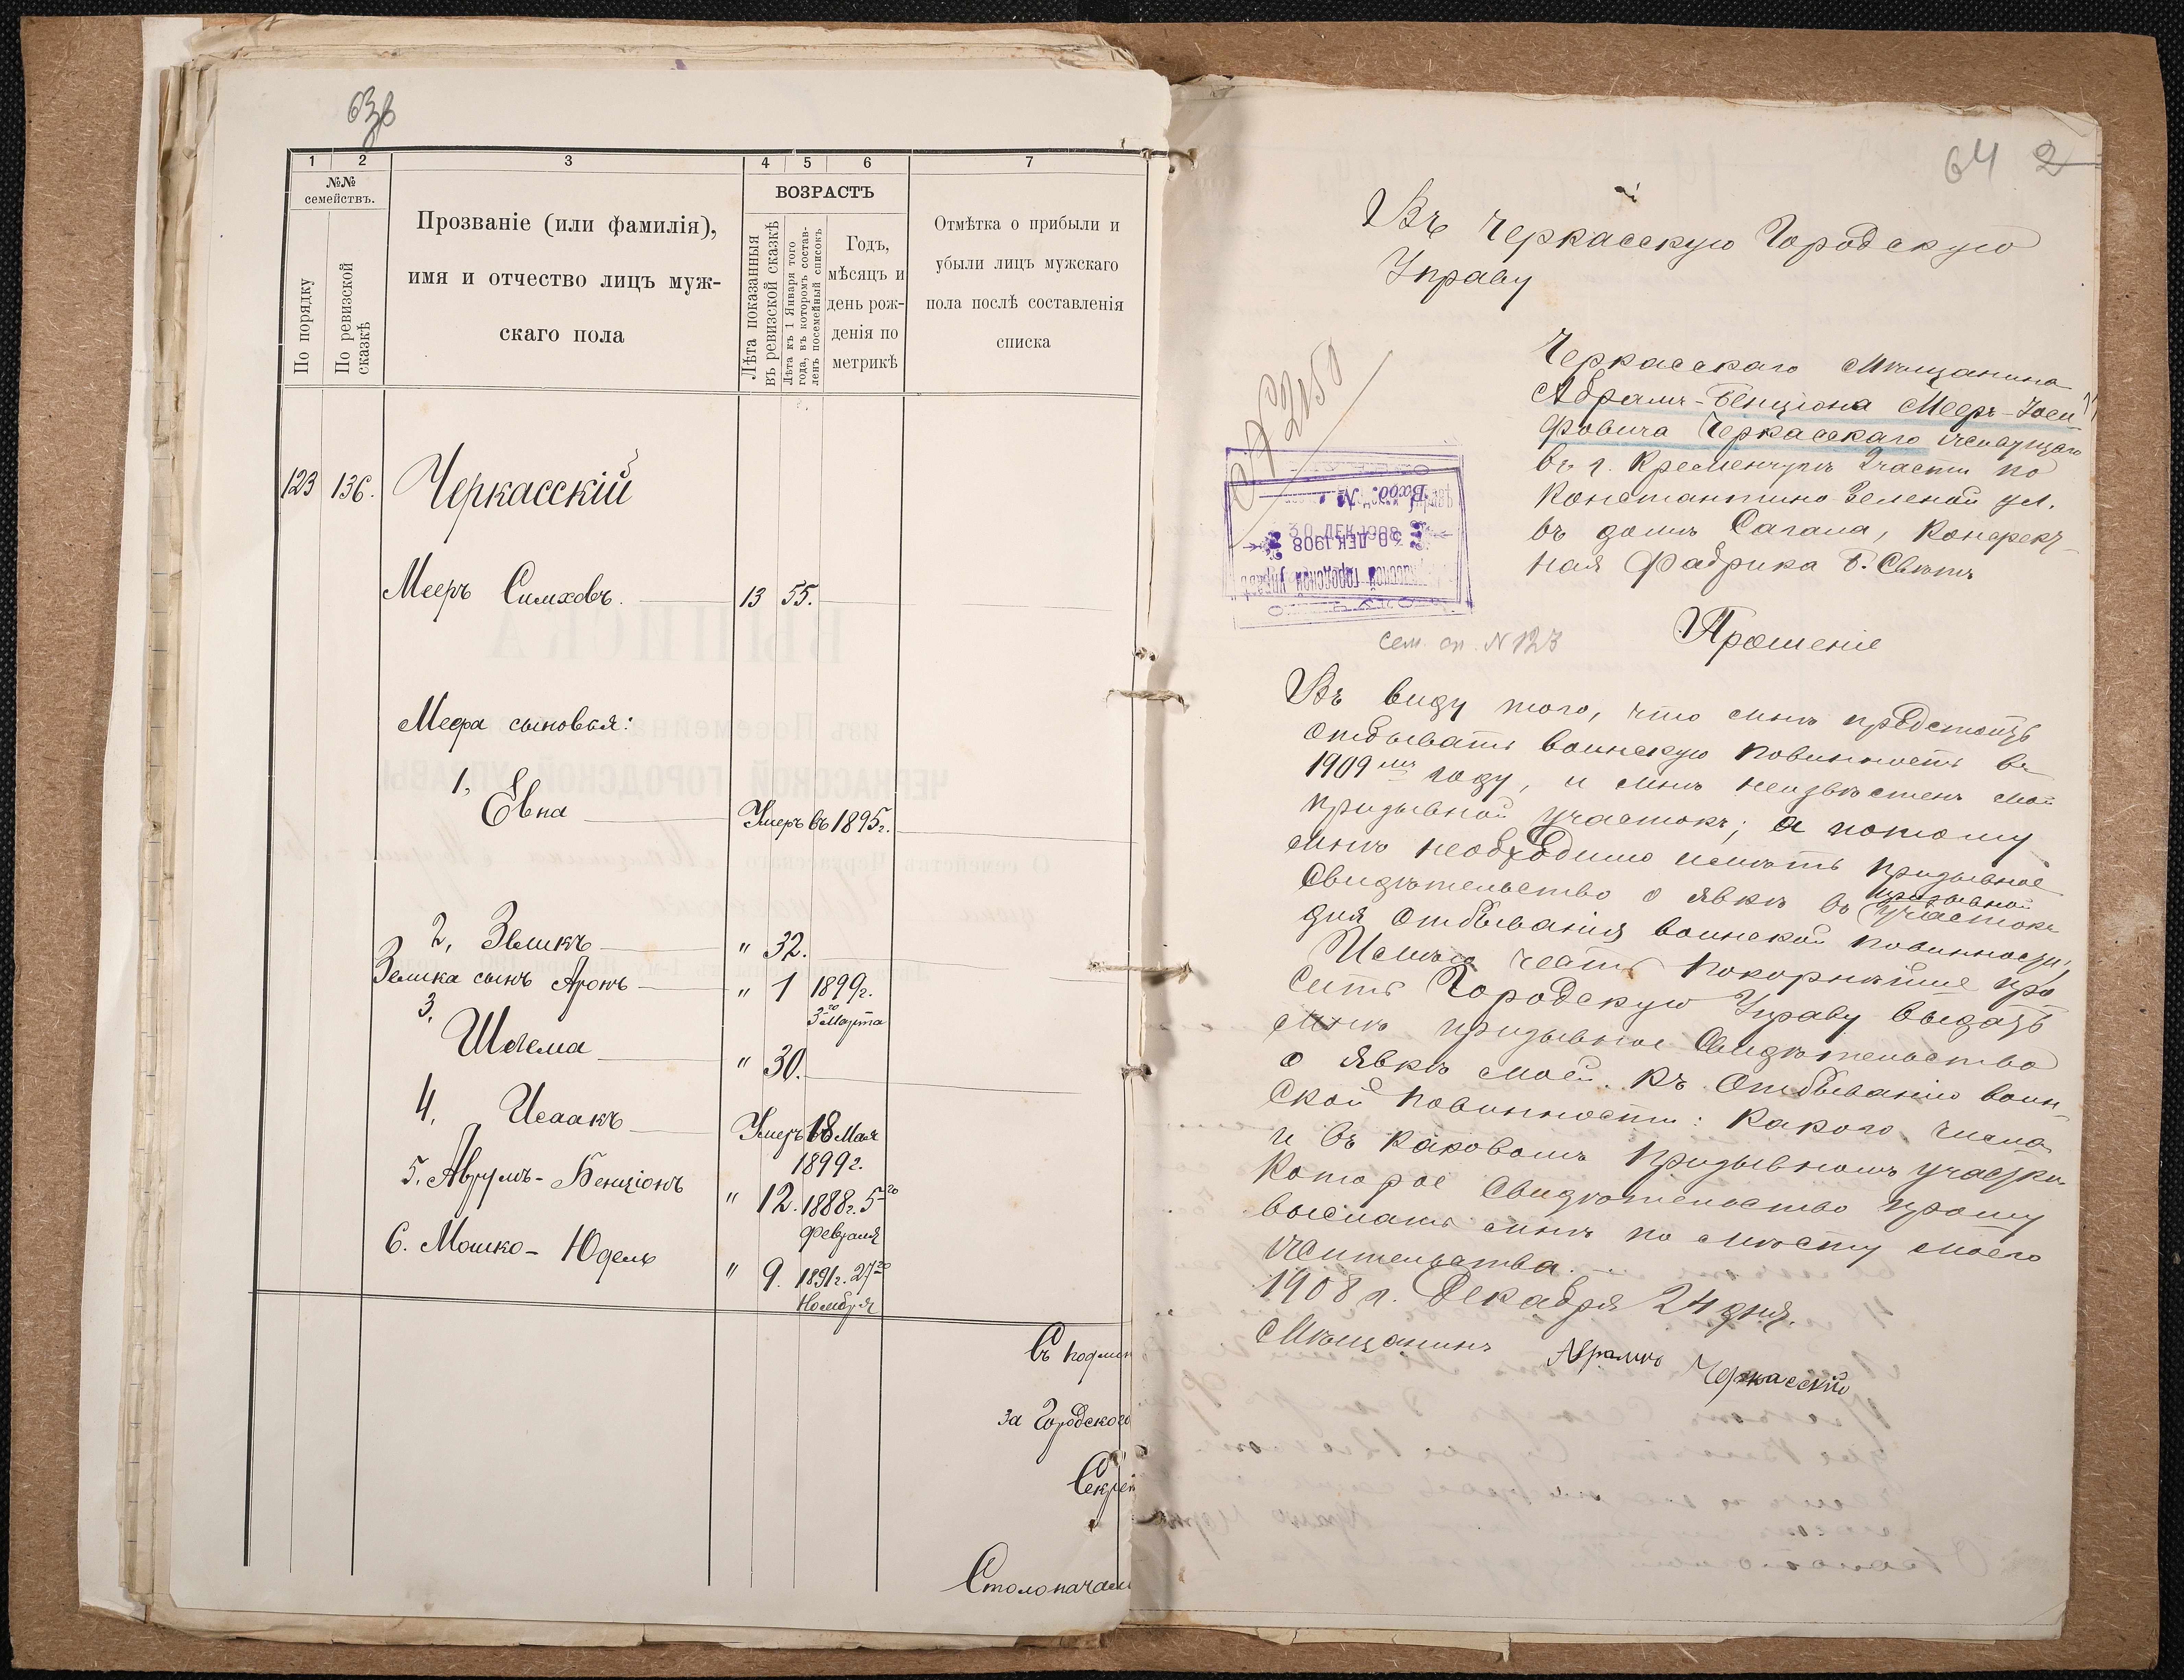 63в
1 2 3 4 5 6 7
№№ семействъ.
По порядку
По ревизской сказкѣ
Прозваніе (или фамилія),
имя и отчество лицъ муж-
скаго пола
ВОЗРАСТЪ
Лѣта показанныя въ ревизской сказкѣ
Лѣта къ 1 Января того года, въ которомъ состав-ленъ посемейный списокъ
Годъ,
мѣсяцъ и
день рож-
денія по
метрикѣ
Отмѣтка о прибыли и
убыли лицъ мужскаго
пола послѣ составленія
списка
123 136. Черкасскій
Мееръ Симховъ. 13 55.
Меера сыновья:
1, Евна Умеръ въ 1895 г.
2, Зеликъ " 32.
Зелика сынъ Аронъ " 1 1899 г.
3го Марта
3, Шлема " 30.
4, Исаакъ Умеръ 18 Мая
1899 г.
5. Аврумъ-Бенціонъ " 12. 1888 г. 5го
Февраля
6. Мошко-Юдель " 9. 1891 г. 27го
Ноября
Съ подлин
за Городского
Секрет
Столоначал
64 2
Въ Черкасскую Городскую
Управу
Черкасскаго Мѣщанина
Абрамъ-Бенціона Мееръ-Іоси
фовича Черкасскаго жевущаго
въ г. Кременчугѣ 2 части по
Константино Еленой ул.
въ домѣ Сагала, Конфект-
ная Фабрика Б. Свѣтъ
№ 2150
Вход. №
30 ДЕК 1908
сем. сп. № 123
Прошеніе
Въ виду того, что мнѣ предстоитъ
отбывать воинскую повинность въ
1909мъ году, и мнѣ неизвѣстенъ мой
призывной участокъ; а потому
мнѣ необходимо имѣть призывное
Свидѣтельство о явкѣ въ призывной участокъ
для отбыванія воинской повинности,
Имѣю честь покорнѣйше про
сить Городскую Управу выдать
мнѣ призывное Свидѣтельство
о явкѣ моей къ отбыванію воин-
ской повинности: какого числа
и въ каковомъ призывномъ участкѣ
Которое Свидѣтельство прошу
выслать мнѣ по мѣсту моего
жительства.
1908 г. Декабря 24 дня.
Мѣщанинъ Абрамъ Черкасскій